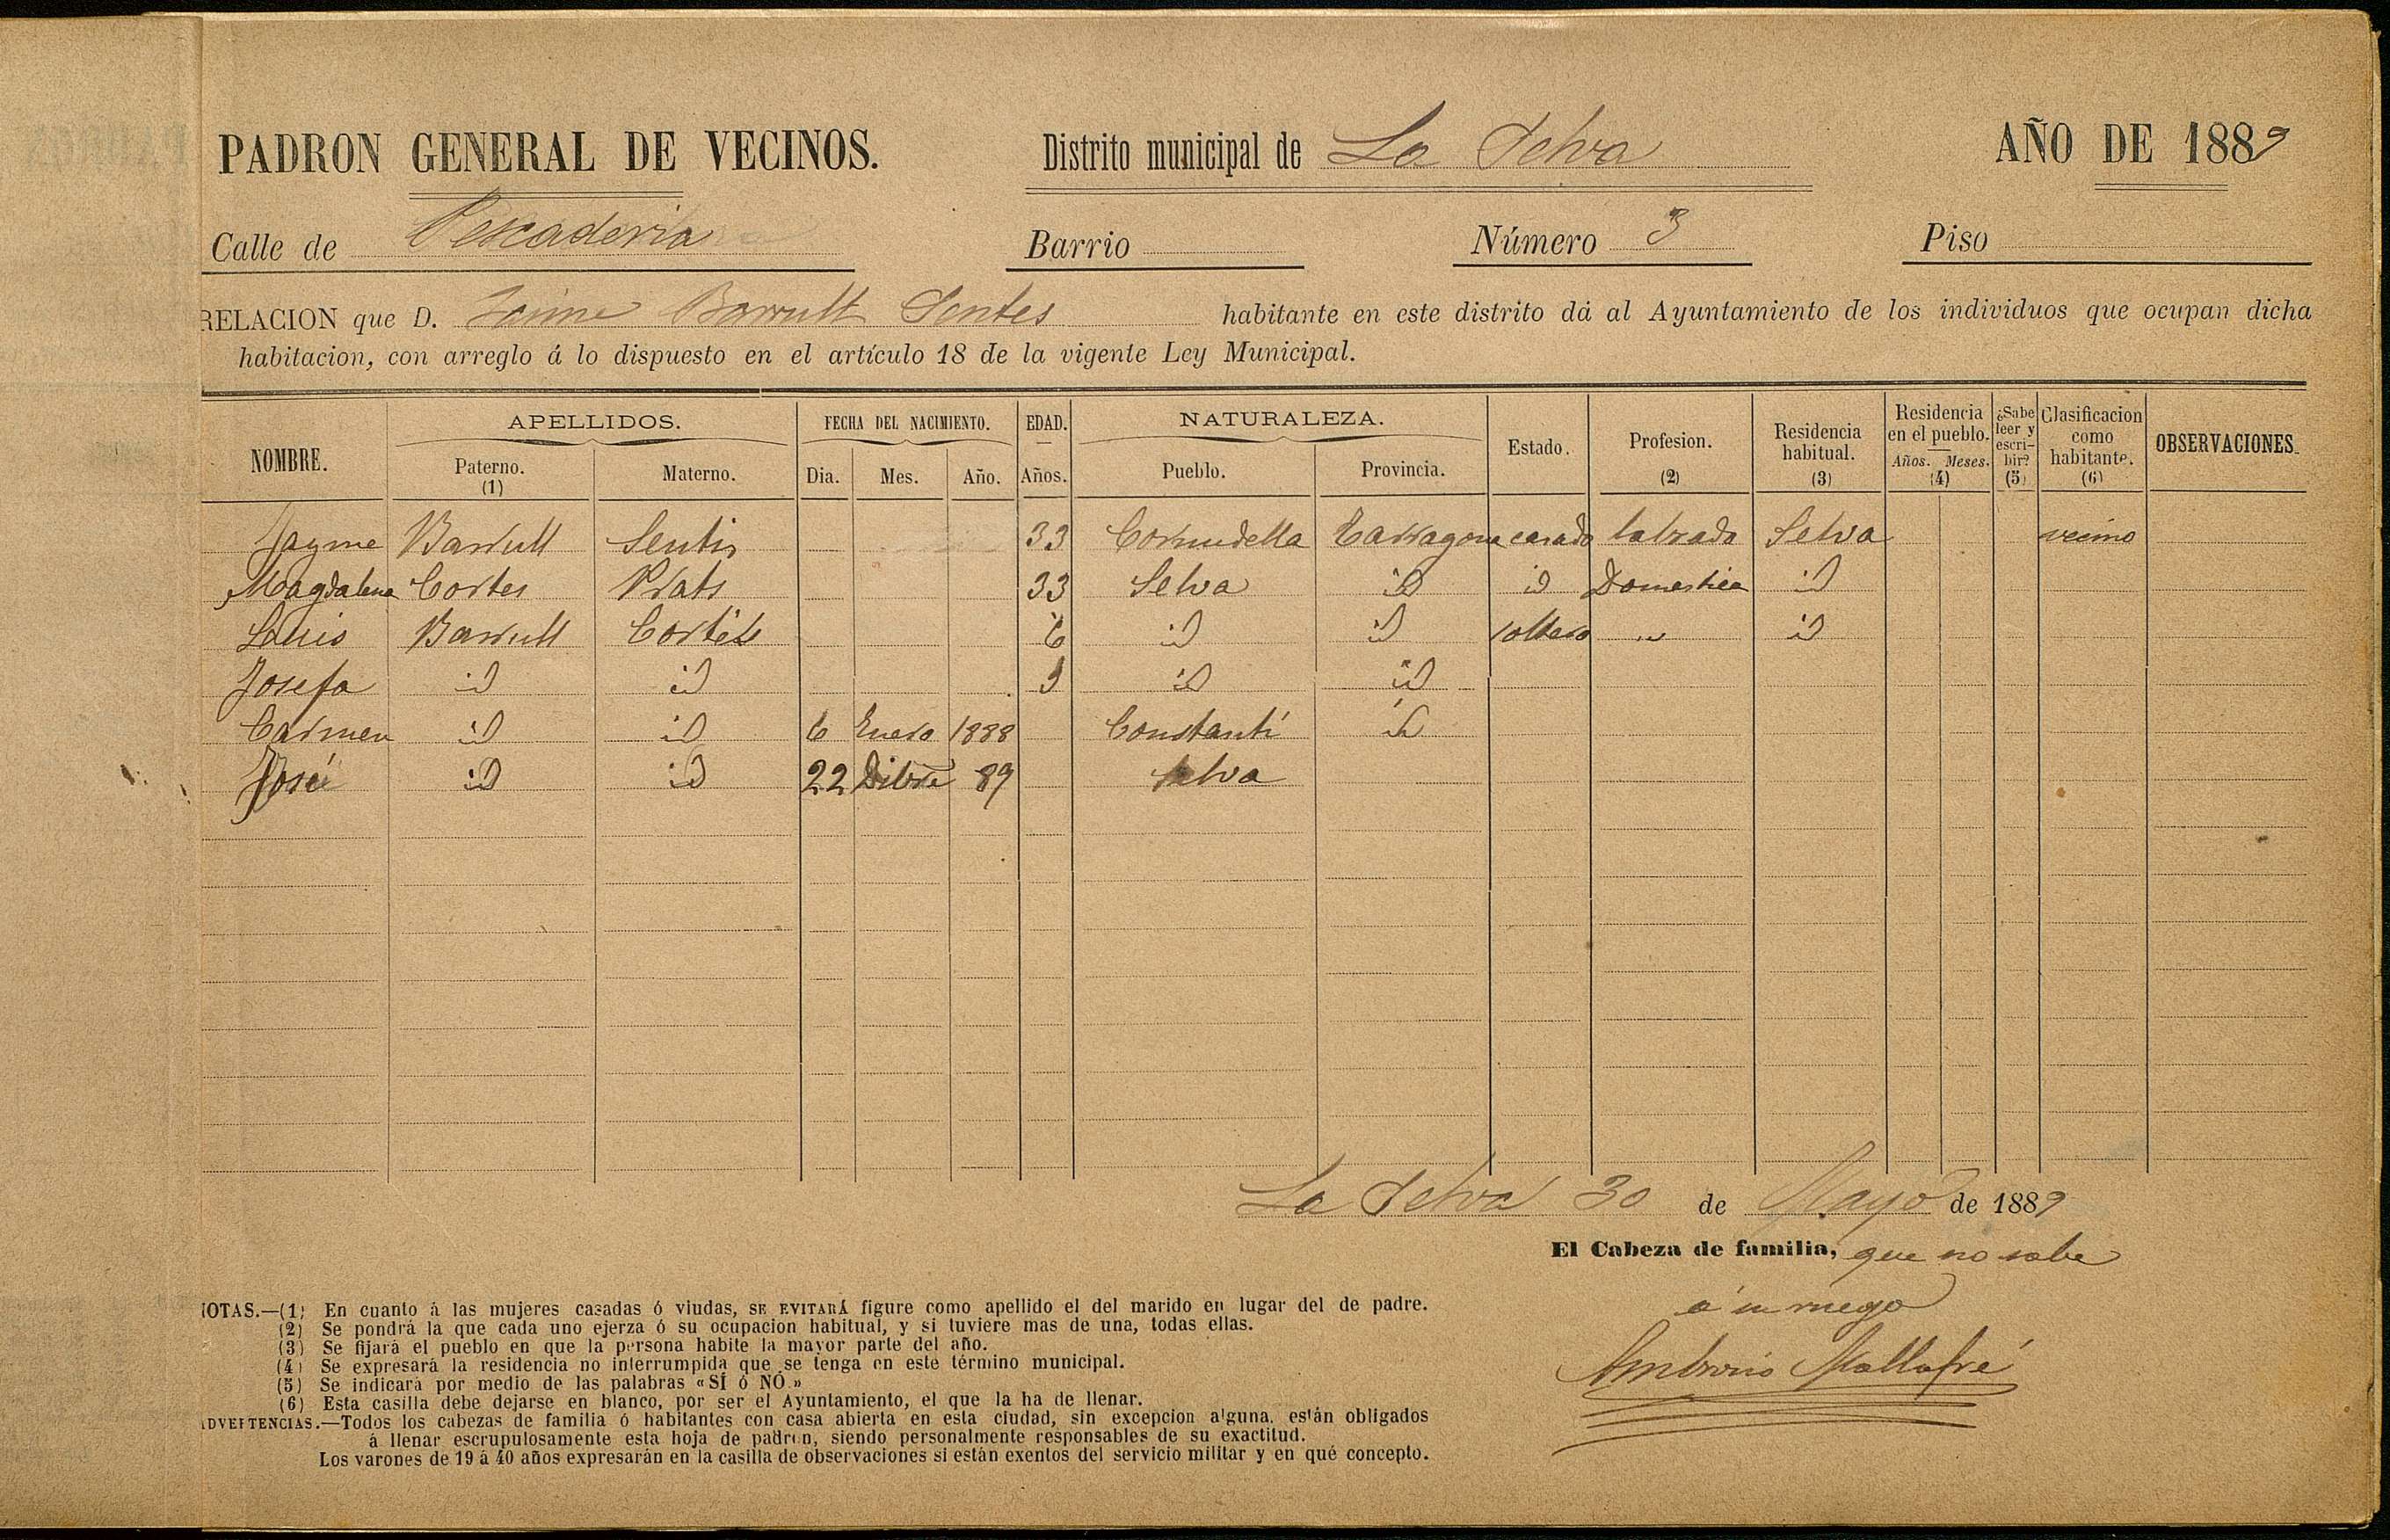 PADRON GENERAL DE VECINOS. Distrito municipal de La Selva AÑO DE 1889
Calle de Pescaderia Barrio Número 3 Piso
RELACION que D. Jaime Barrult Sentes habitante en este distrito dá al Ayuntamiento de los individuos que ocupan dicha
habitacion, con arreglo á lo dispuesto en el artículo 18 de la vigente Ley Municipal.
NOMBRE. APELLIDOS. Paterno. (1) Materno. FECHA DEL NACIMIENTO. Dia. Mes. Año. EDAD. Años. NATURALEZA. Pueblo. Provincia. Estado. Profesion. (2) Residencia habitual. (3) Residencia en el pueblo. Años. Meses. (4) ¿Sabe leer y escribir? (5) Clasificacion como habitante. (6) OBSERVACIONES.
Jayme Barrull Sentis 33 Cornudella Tarragona casado labrado Selva vecino
Magdalena Cortes Prats 33 Selva id id Domestica id
Luis Barrull Cortés 6 id id soltero " id
Josefa id id 3 id id
Carmen id id 6 Enero 1888 Constantí id
José id id 22 Dibre 89 Selva
La Selva 30 de Mayo de 1889
El Cabeza de familia, que no sabe
á su ruego
Ambrosio Mallafré
NOTAS.—(1) En cuanto á las mujeres casadas ó viudas, SE EVITARÁ figure como apellido el del marido en lugar del de padre.
(2) Se pondrá la que cada uno ejerza ó su ocupacion habitual, y si tuviere mas de una, todas ellas.
(3) Se fijará el pueblo en que la persona habite la mayor parte del año.
(4) Se expresará la residencia no interrumpida que se tenga en este término municipal.
(5) Se indicará por medio de las palabras «SÍ ó NO.»
(6) Esta casilla debe dejarse en blanco, por ser el Ayuntamiento, el que la ha de llenar.
ADVERTENCIAS.—Todos los cabezas de familia ó habitantes con casa abierta en esta ciudad, sin excepcion alguna, están obligados
á llenar escrupulosamente esta hoja de padron, siendo personalmente responsables de su exactitud.
Los varones de 19 á 40 años expresarán en la casilla de observaciones si están exentos del servicio militar y en qué concepto.